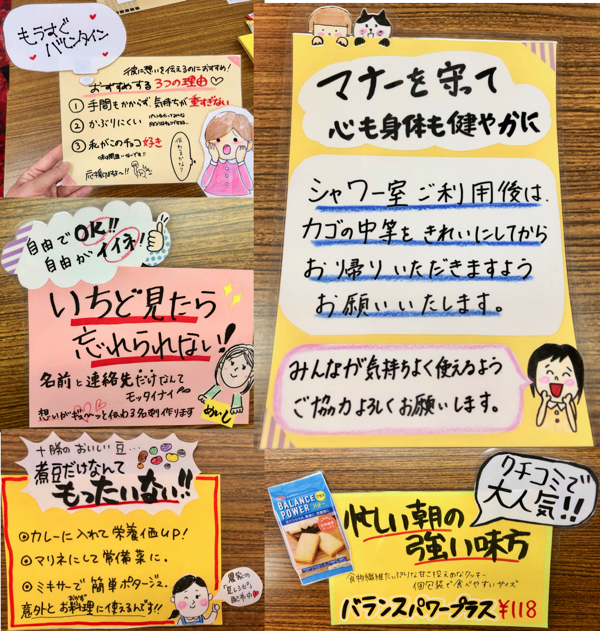 もうすぐ
バレンタイン
彼に想いを伝えるのにおすすめ！
おすすめする3つの理由♡
① 手間もかからず、気持ちが重すぎない
② かぶりにくい
③ 私がこのチョコ好き
自由でOK!!
自由がイイネ!
いちど見たら
忘れられない!
名前と連絡先だけなんて
モッタイナイ
想いがギューッと伝わる名刺作ります
めいし
十勝のおいしい豆...
煮豆だけなんて
もったいない!!
◎カレーに入れて栄養価UP!
◎マリネにして常備菜に。
◎ミキサーで簡単ポタージュ。
意外とお料理に使えるんです!!
農家の
"豆レシピ"
配布中♥
マナーを守って
心も身体も健やかに
シャワー室ご利用後は、
カゴの中等をきれいにしてから
お帰りいただきますよう
お願いいたします。
みんなが気持ちよく使えるよう
ご協力よろしくお願いします。
クチコミで
大人気!!
BALANCE
POWER
忙しい朝の
強い味方
食物繊維たっぷりな甘さ控えめなクッキー
個包装で食べやすいサイズ
バランスパワープラス¥118